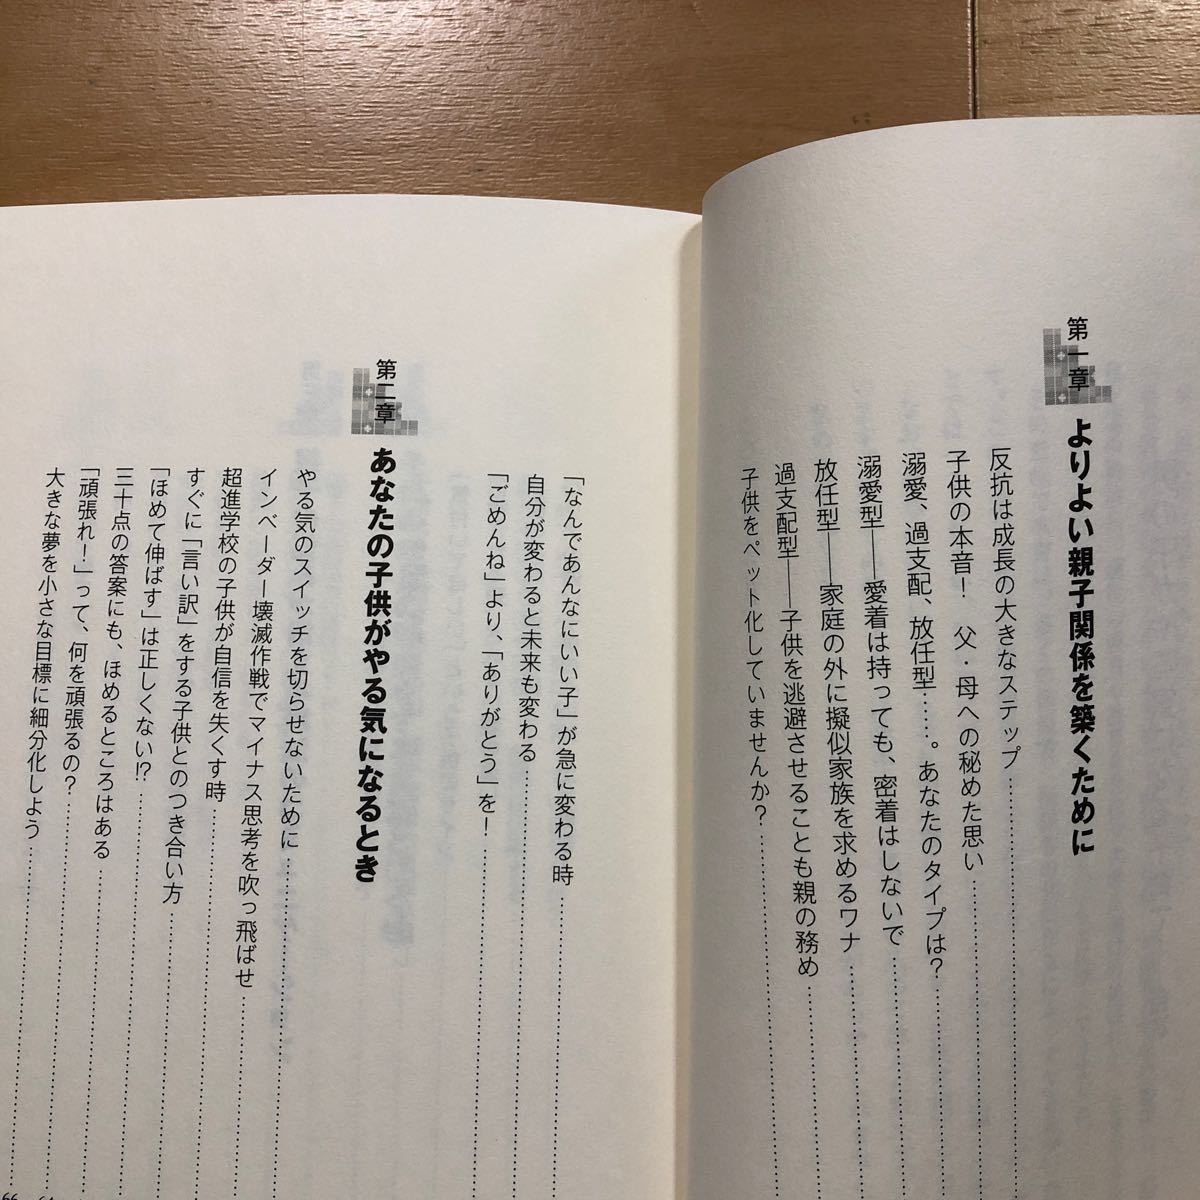 第一章
よりよい親子関係を築くために
反抗は成長の大きなステップ……………
子供の本音！　父・母への秘めた思い……………
溺愛、過支配、放任型……。あなたのタイプは？……………
溺愛型――愛着は持っても、密着はしないで……………
放任型――家庭の外に擬似家族を求めるワナ……………
過支配型――子供を逃避させることも親の務め……………
子供をペット化していませんか？……………
「なんであんなにいい子」が急に変わる時……………
自分が変わると未来も変わる……………
「ごめんね」より、「ありがとう」を！……………
第二章
あなたの子供がやる気になるとき
やる気のスイッチを切らせないために……………
インベーダー壊滅作戦でマイナス思考を吹っ飛ばせ……………
超進学校の子供が自信を失くす時……………
すぐに「言い訳」をする子供とのつき合い方……………
「ほめて伸ばす」は正しくない!?……………
三十点の答案にも、ほめるところはある……………
「頑張れ！」って、何を頑張るの？……………
大きな夢を小さな目標に細分化しよう……………